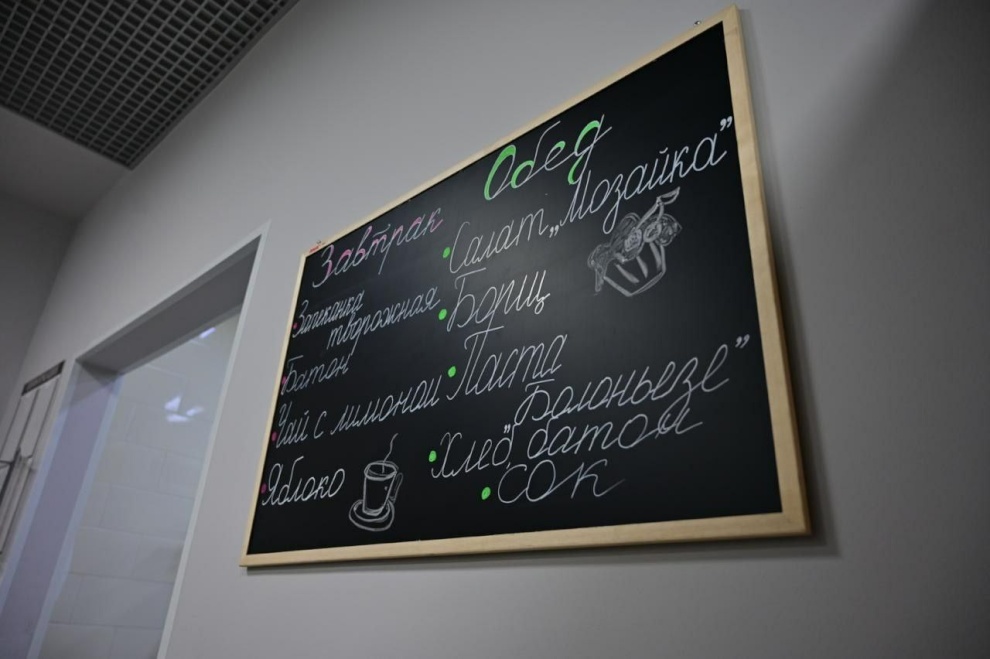 Завтрак
Запеканка
творожная
Батон
Чай с лимоном
Яблоко
Обед
Салат „Мозайка”
Борщ
Паста
„Болоньезе”
Хлеб батон
сок